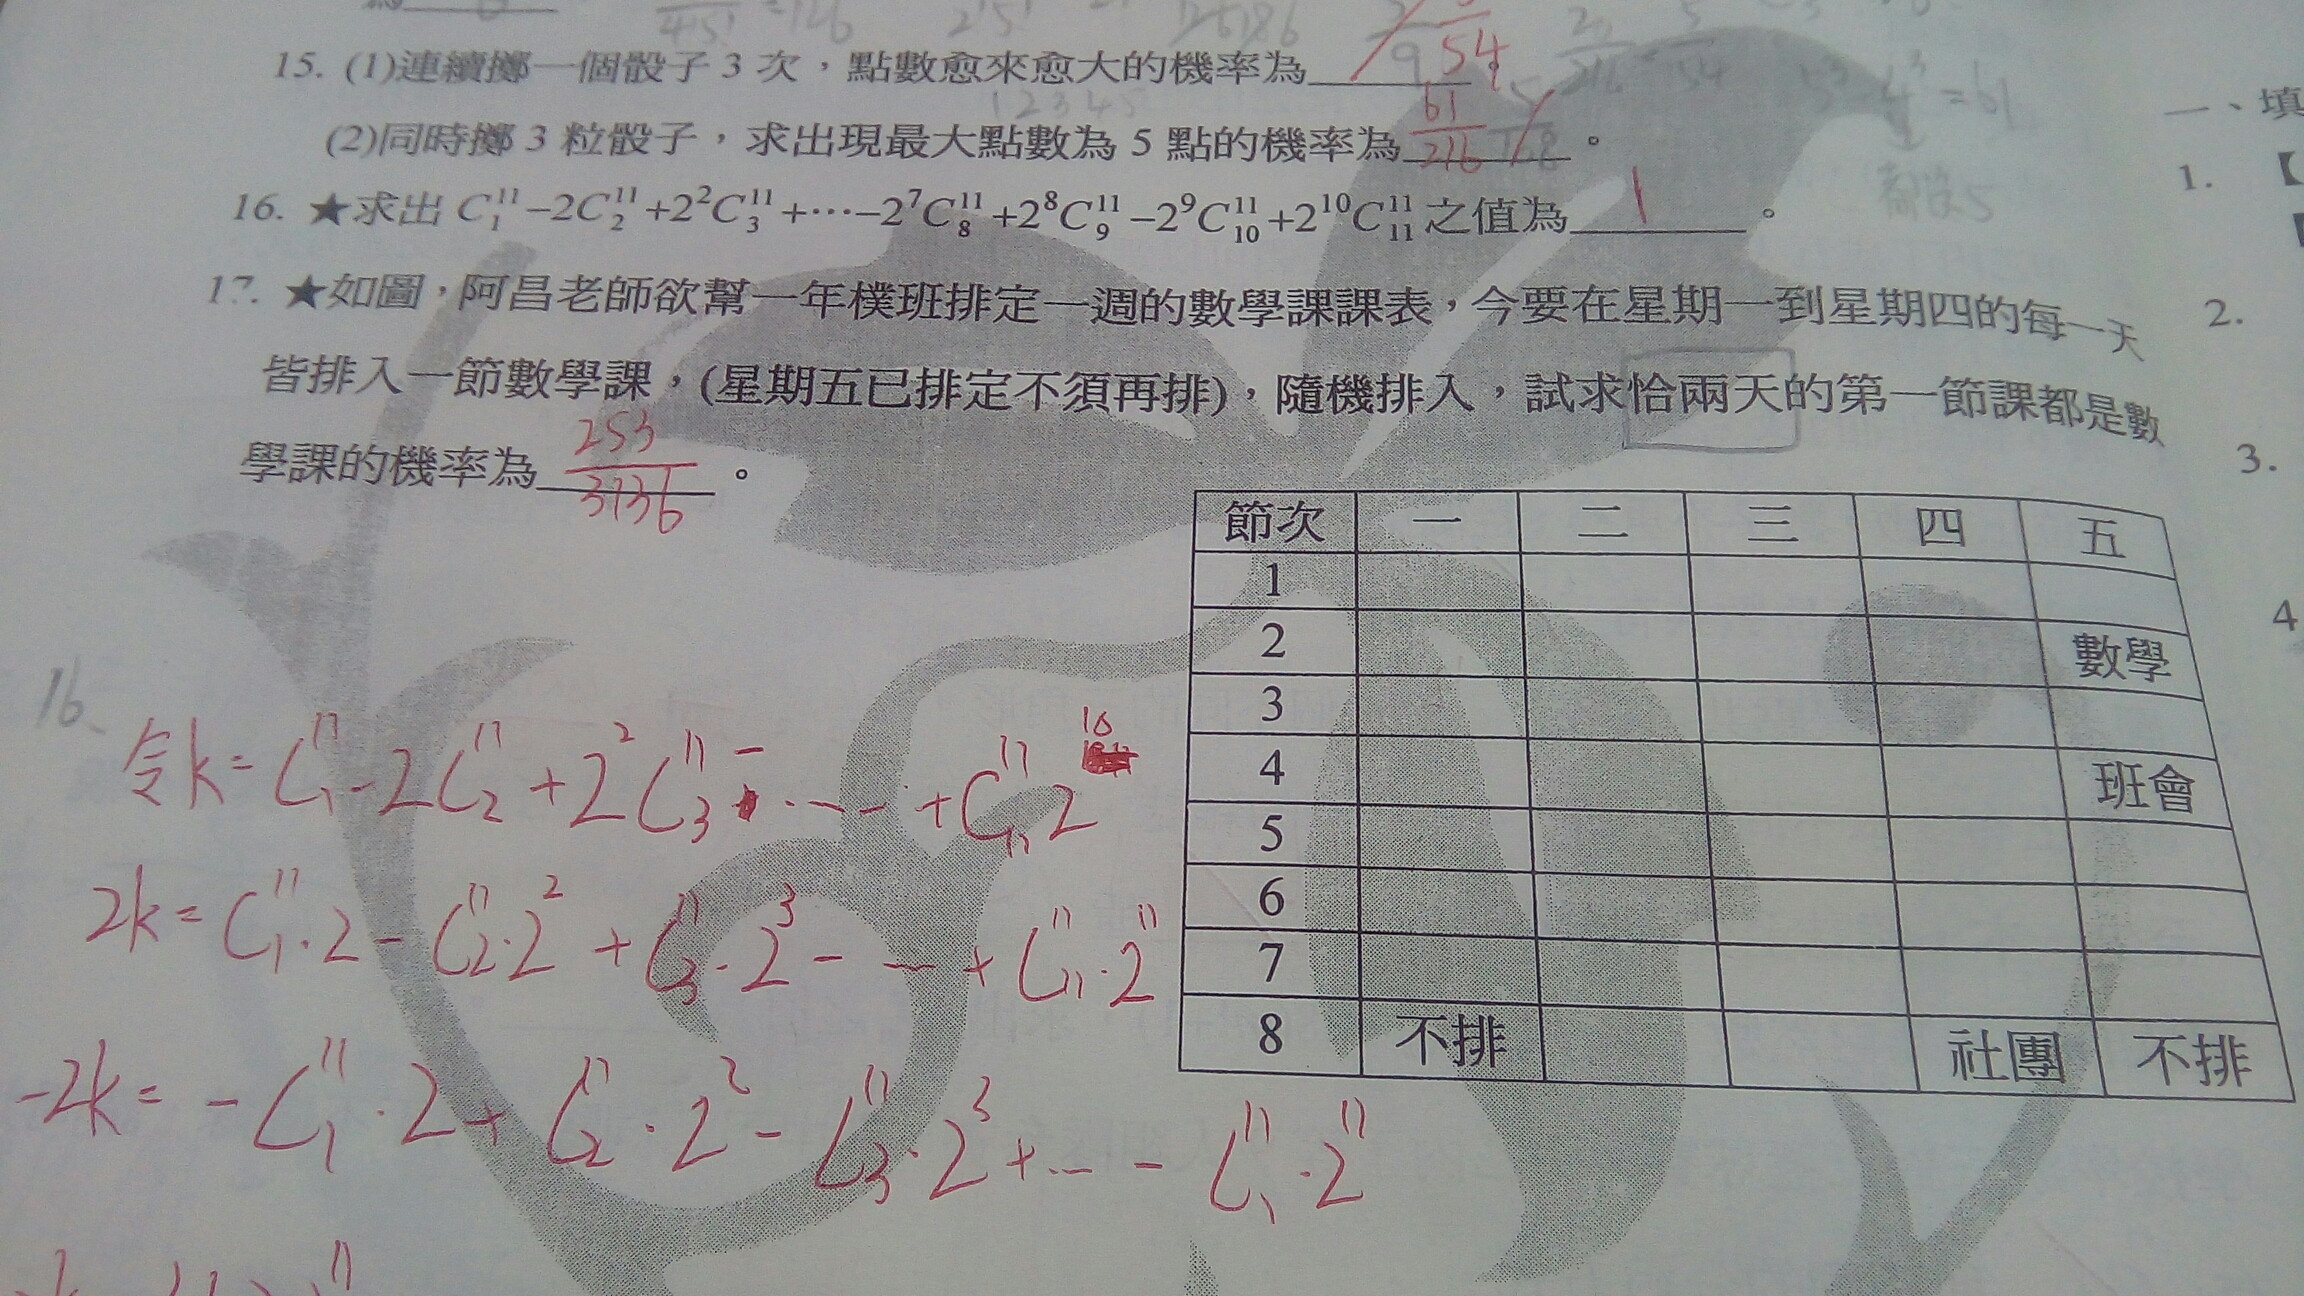 15. (1)連續擲一個骰子 3 次，點數愈來愈大的機率為 5/54 。
12345
(2)同時擲 3 粒骰子，求出現最大點數為 5 點的機率為 61/216 。
5³-4³=61
16. ★求出 C₁¹¹−2C₂¹¹+2²C₃¹¹+⋯−2⁷C₈¹¹+2⁸C₉¹¹−2⁹C₁₀¹¹+2¹⁰C₁₁¹¹ 之值為 1 。
17. ★如圖，阿昌老師欲幫一年樸班排定一週的數學課課表，今要在星期一到星期四的每一天
皆排入一節數學課，(星期五已排定不須再排)，隨機排入，試求恰兩天的第一節課都是數
學課的機率為 253/3136 。
節次 一 二 三 四 五
1
2 數學
3
4 班會
5
6
7
8 不排 社團 不排
16、
令k= C₁¹¹-2C₂¹¹+2²C₃¹¹-⋯+C₁₁¹¹2¹⁰
2k= C₁¹¹·2-C₂¹¹·2²+C₃¹¹·2³-⋯+C₁₁¹¹·2¹¹
-2k= -C₁¹¹·2+C₂¹¹·2²-C₃¹¹·2³+⋯-C₁₁¹¹·2¹¹
一、填
1.
2.
3.
4